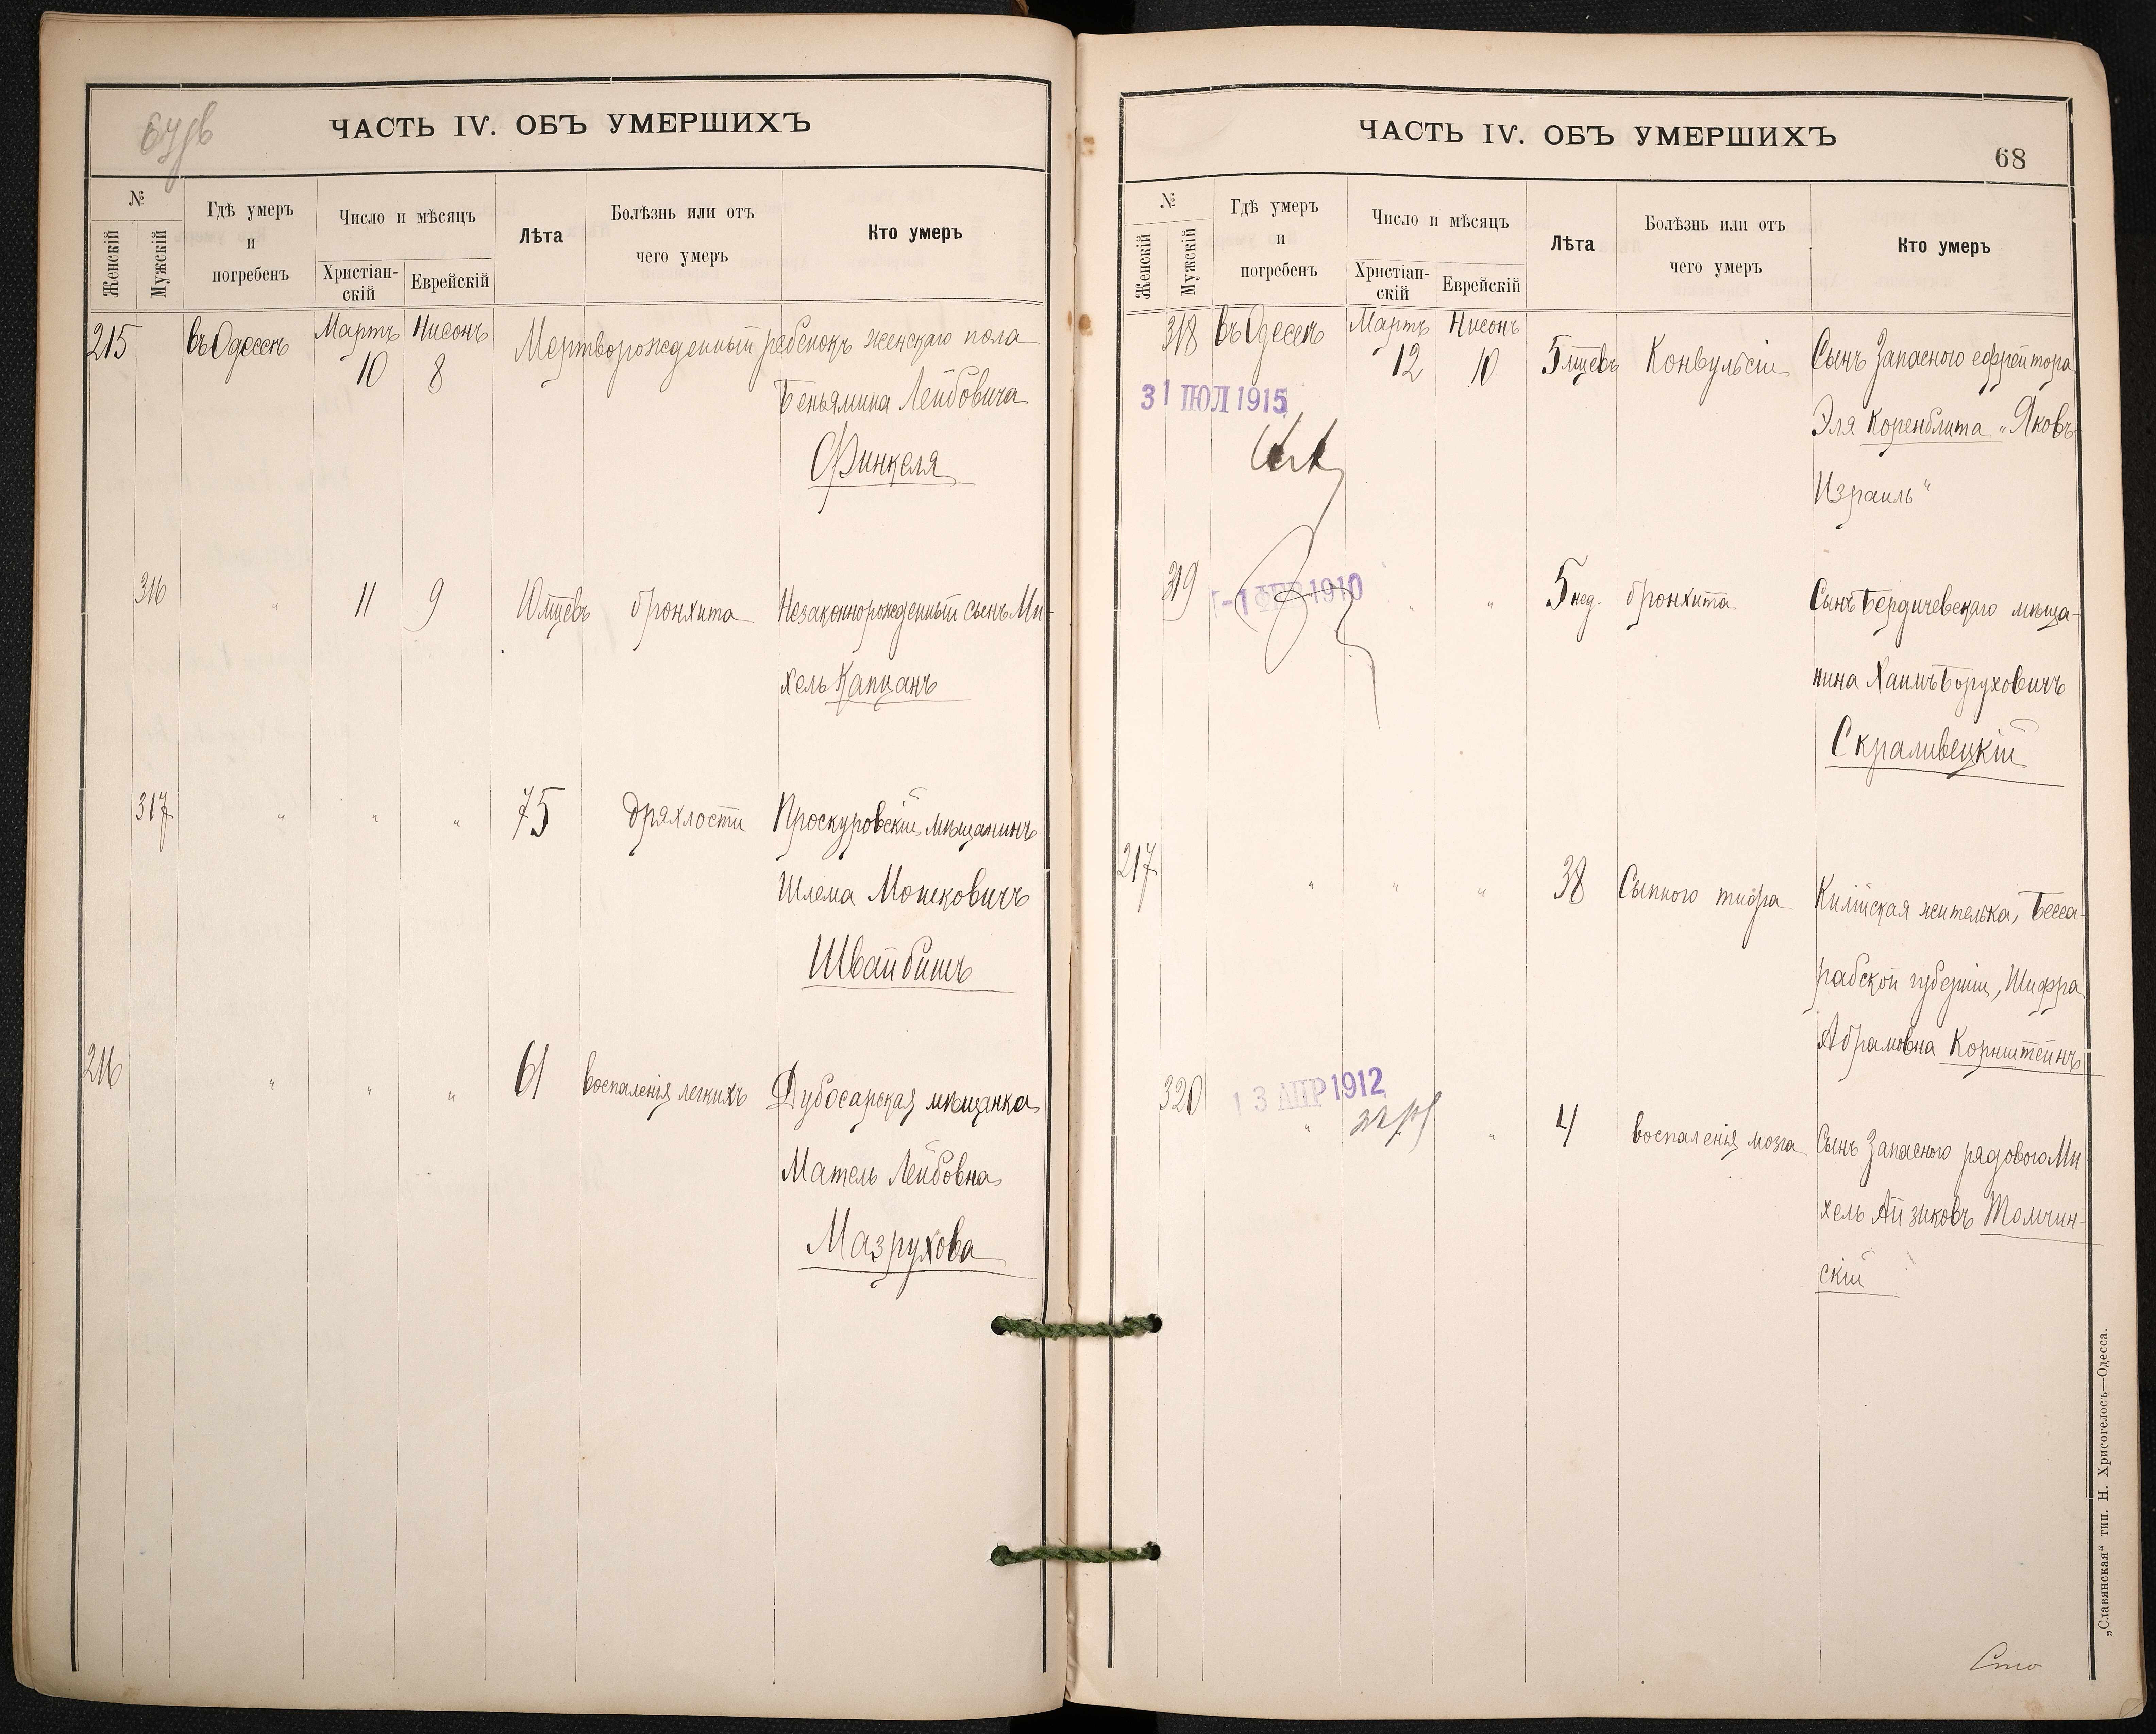 67об
ЧАСТЬ IV. ОБЪ УМЕРШИХЪ
№
Женскій
Мужскій
Гдѣ умеръ
и
погребенъ
Число и мѣсяцъ
Христіан-
скій
Еврейскій
Лѣта
Болѣзнь или отъ
чего умеръ
Кто умеръ
215 въ Одессѣ Мартъ 10 Нисонъ 8 Мертворожденный ребенокъ женскаго пола
Беньямина Лейбовича
Финкеля
316 " 11 9 10 мцевъ бронхита Незаконнорожденный сынъ Ми-
хель Капцанъ
317 " " " 75 дряхлости Проскуровскій мѣщанинъ
Шлема Мошковичъ
Швайбишъ
216 " " " 61 воспаленія легкихъ Дубосарская мѣщанка
Матель Лейбовна
Мазрухова
ЧАСТЬ IV. ОБЪ УМЕРШИХЪ
68
№
Женскій
Мужскій
Гдѣ умеръ
и
погребенъ
Число и мѣсяцъ
Христіан-
скій
Еврейскій
Лѣта
Болѣзнь или отъ
чего умеръ
Кто умеръ
318 въ Одессѣ Мартъ 12 Нисонъ 10 5 мцевъ Конвульсіи Сынъ Запасного ефрейтора
31 ІЮЛ 1915
Эля Коренблита „Яковъ
Израиль"
319 -1 ФЕВ 1910 " " 5 нед. бронхита Сынъ Бердичевскаго мѣща-
нина Хаимъ Боруховичъ
Скраливецкій
217 " " " 38 Сыпного тифа Килійская жителька, Бесса-
рабской губерніи, Шифра
Абрамовна Корнштейнъ
320 13 АПР 1912 " " 4 воспаленія мозга Сынъ Запасного рядового Ми
хель Айзиковъ Толчин-
скій
„Славянская" тип. Н. Хрисогелосъ—Одесса.